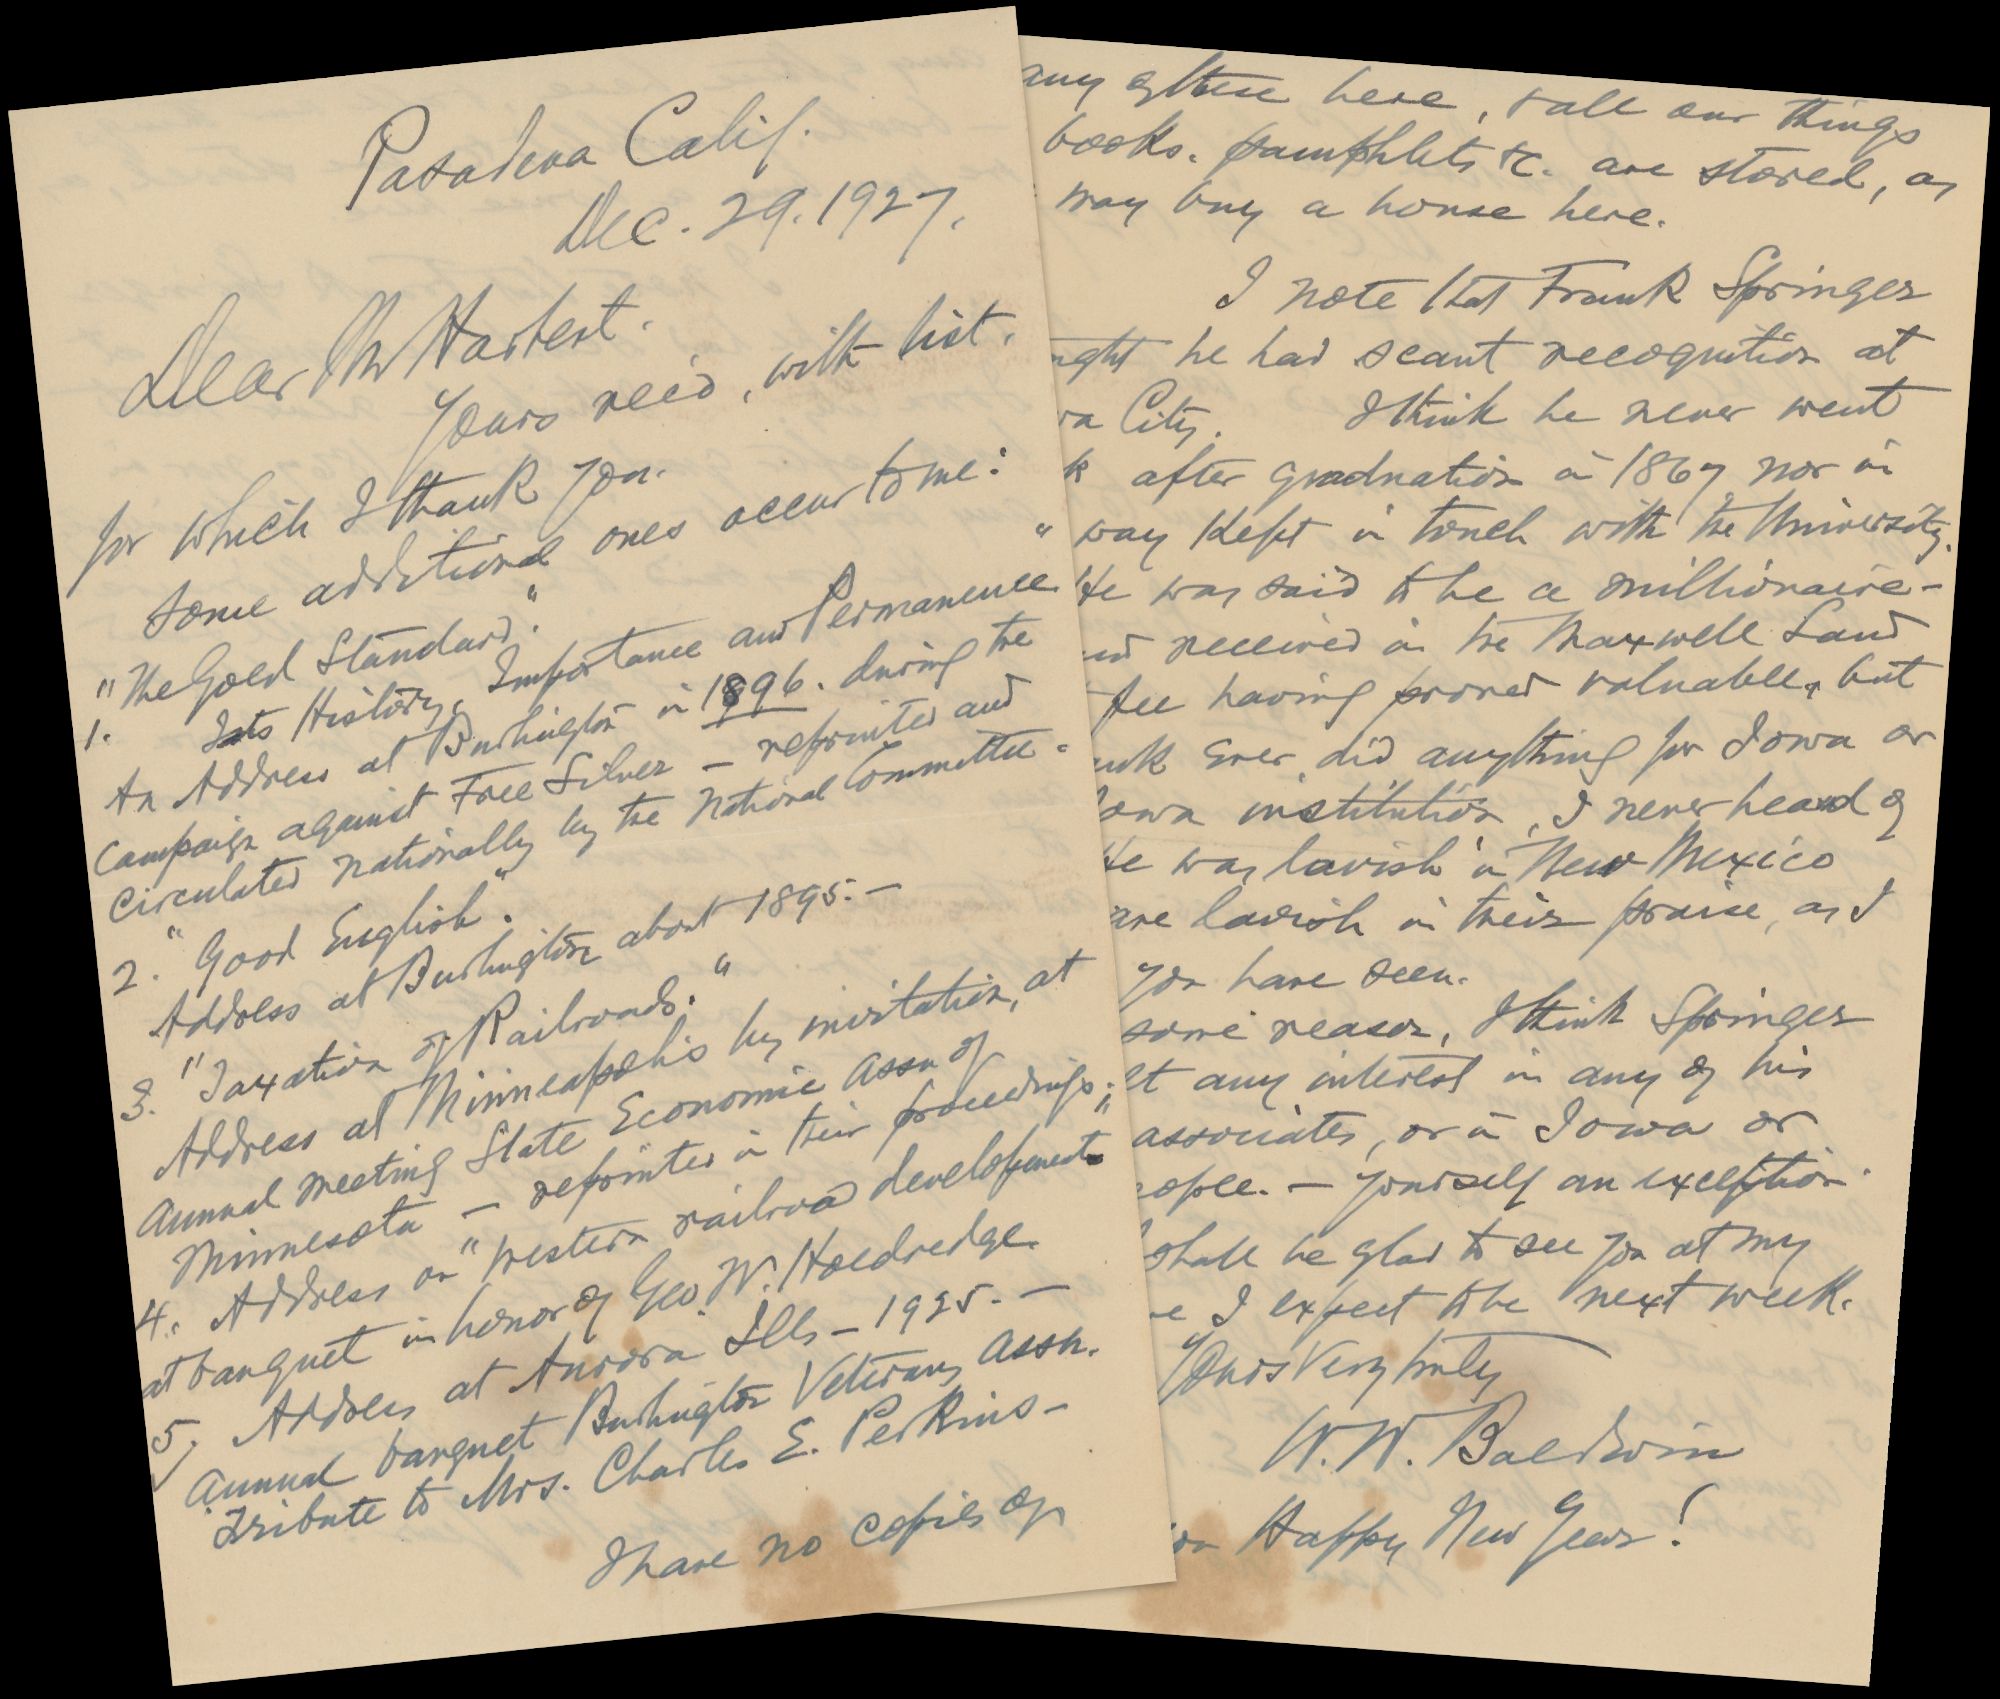 Pasadena Calif.
Dec. 29. 1927.
Dear Mr Harbert.
Yours rec'd, with list,
for which I thank you.
Some additional ones occur to me:
"The Gold Standard."
1. Its History, Importance and Permanence"
An Address at Burlington in 1896. during the
Campaign against Free Silver – reprinted and
Circulated nationally by the National Committee.
2. "Good English".
Address at Burlington about 1895. –
3. "Taxation of Railroads."
Address at Minneapolis by invitation, at
Annual meeting State Economic Assn of
Minnesota – reprinted in their proceedings;
4. Address on "Western railroad development"
at banquet in honor of Geo. W. Holdredge.
5. Address at Aurora Ills – 1925. –
Annual banquet Burlington Veterans Assn.
Tribute to Mrs. Charles E. Perkins –
I have no copies of
any of these here, & all our things
books. pamphlets &c. are stored, as
may buy a house here.
I note that Frank Springer
he had scant recognition at
City. I think he never went
after graduation in 1867 nor in
way kept in touch with the University.
He was said to be a millionaire –
received in the Maxwell Land
fee having proved valuable, but
ever did anything for Iowa or
Iowa institution, I never heard of
He was lavish in New Mexico
are lavish in their praise, as I
you have seen.
some reason, I think Springer
any interest in any of his
associates, or in Iowa or
– yourself an exception.
shall be glad to see you at my
I expect to be next week.
Yours Very truly
W. W. Baldwin
Happy New Year!